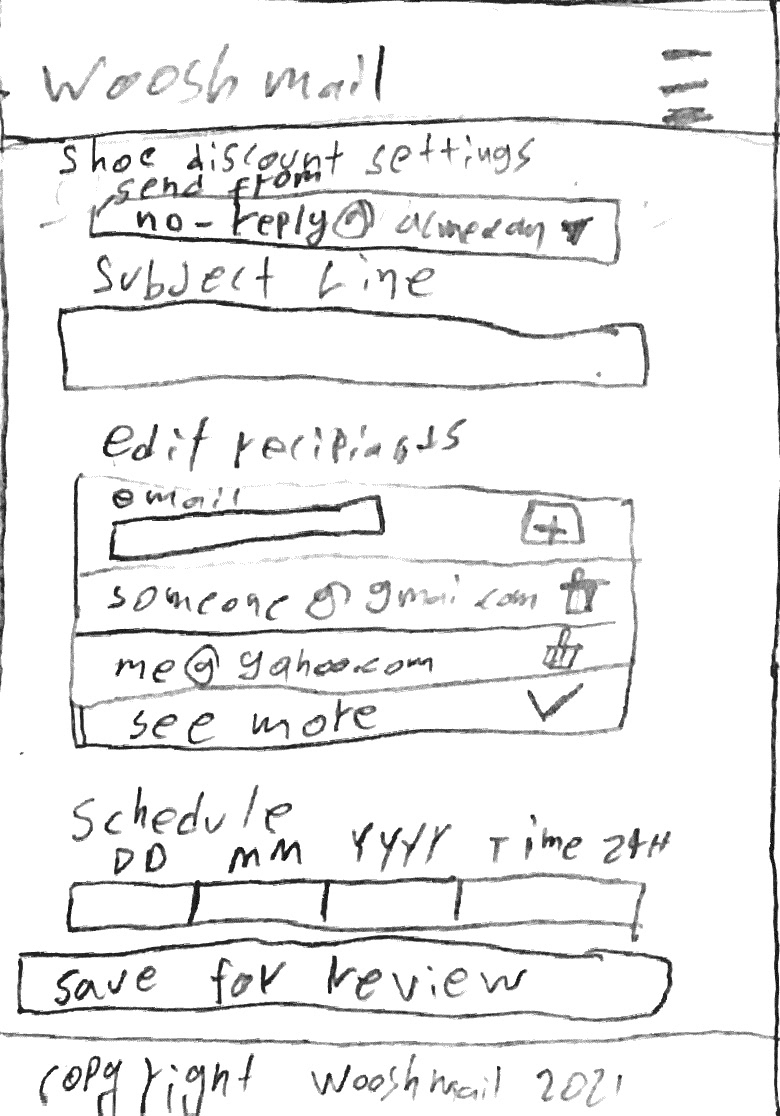 Woosh mail
Shoe discount settings
send from
no-reply@
Subject Line
edit recipiants
email
someone@gmail.com
me@yahoo.com
see more
Schedule
DD MM YYYY Time 24H
save for review
copyright Wooshmail 2021